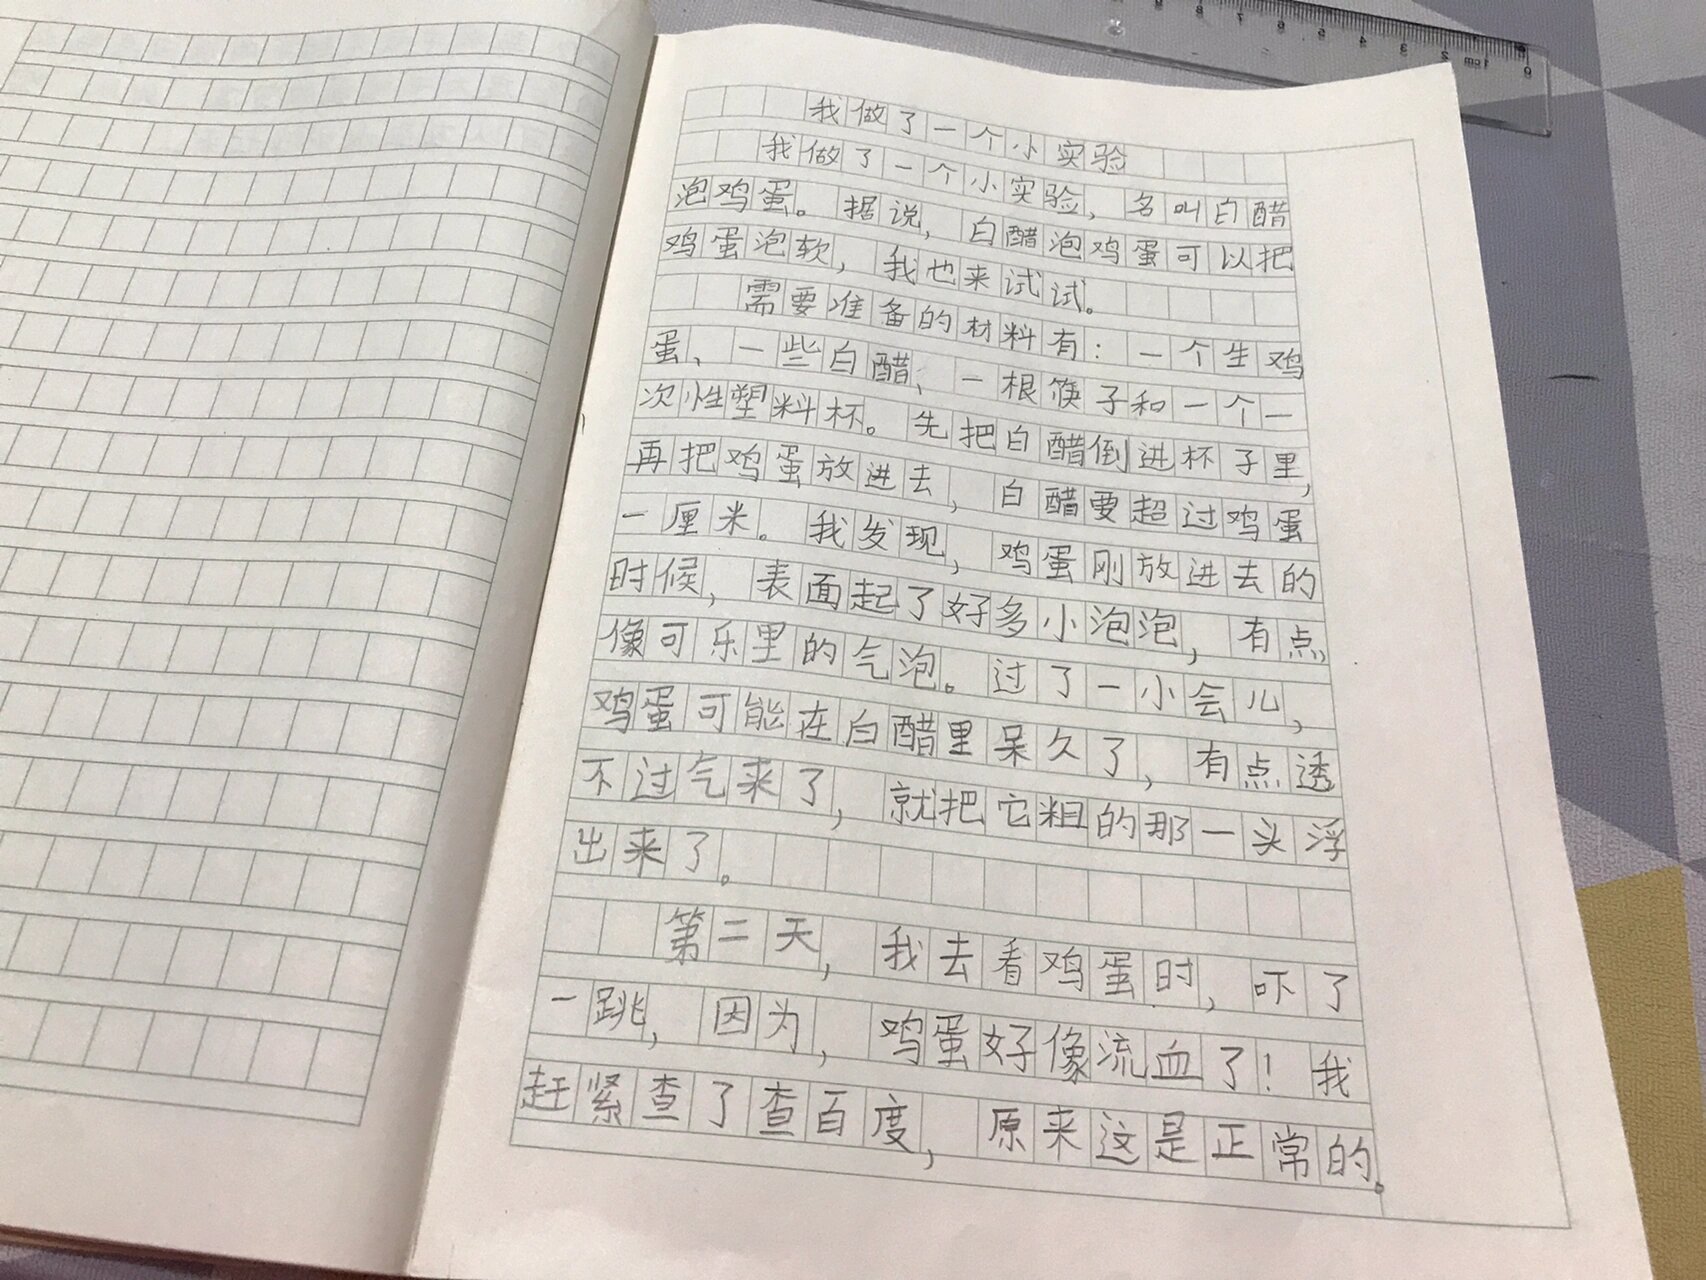 我做了一个小实验
我做了一个小实验，名叫白醋
泡鸡蛋。据说，白醋泡鸡蛋可以把
鸡蛋泡软，我也来试试。
需要准备的材料有：一个生鸡
蛋、一些白醋、一根筷子和一个一
次性塑料杯。先把白醋倒进杯子里，
再把鸡蛋放进去，白醋要超过鸡蛋
一厘米。我发现，鸡蛋刚放进去的
时候，表面起了好多小泡泡，有点
像可乐里的气泡。过了一小会儿，
鸡蛋可能在白醋里呆久了，有点透
不过气来了，就把它粗的那一头浮
出来了。
第二天，我去看鸡蛋时，吓了
一跳，因为，鸡蛋好像流血了！我
赶紧查了查百度，原来这是正常的。
0 1cm 2 3 4 5 6 7 8 9